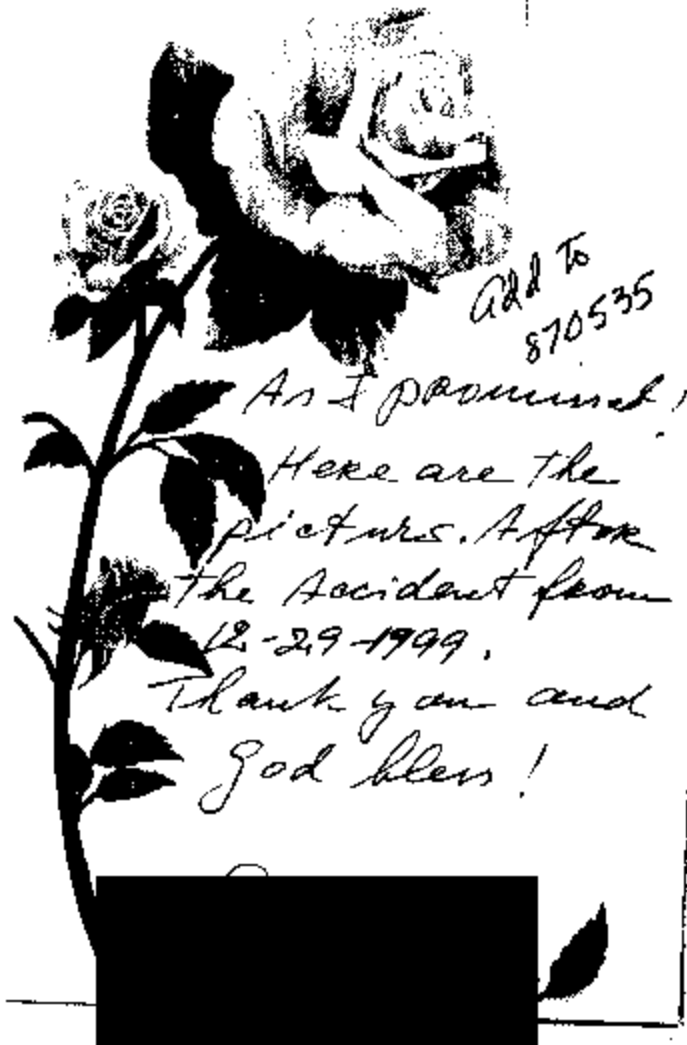 Add To
870535
As I promised!
Here are the
picturs. After
the Accident from
12-29-1999.
Thank you and
God bless!